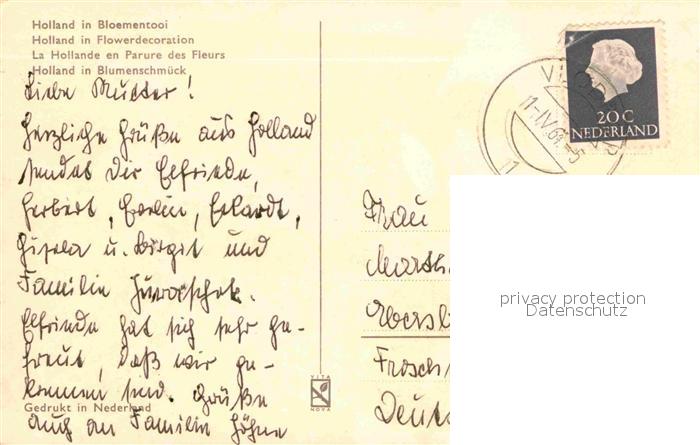 Holland in Bloementooi
Holland in Flowerdecoration
La Hollande en Parure des Fleurs
Holland in Blumenschmück
Liebe Mutter!
Herzliche Grüße aus Holland
sendet Dir Elfriede,
Herbert, Evelin, Erhardt,
Gisela u. Birgit und
Familie
Elfriede hat sich sehr ge-
freut, daß wir ge-
kommen sind. Grüße
auch an Familie Höhne
Gedrukt in Nederland
VITA
NOVA
20 C
NEDERLAND
Frau
Martha
Ebersb
Frosch
Deut
privacy protection
Datenschutz